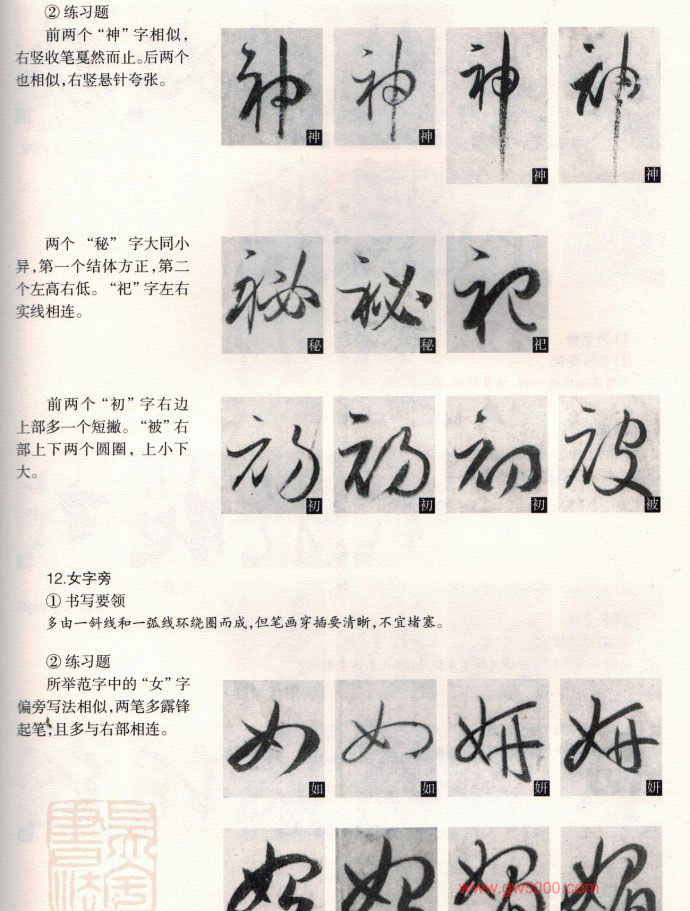 ② 练习题
前两个“神”字相似，
右竖收笔戛然而止。后两个
也相似，右竖悬针夸张。
神 神 神 神
两个 “秘” 字大同小
异，第一个结体方正，第二
个左高右低。“祀”字左右
实线相连。
秘 秘 祀
前两个“初”字右边
上部多一个短撇。“被”右
部上下两个圆圈，上小下
大。
初 初 初 被
12.女字旁
① 书写要领
多由一斜线和一弧线环绕圈而成，但笔画穿插要清晰，不宜堵塞。
② 练习题
所举范字中的“女”字
偏旁写法相似，两笔多露锋
起笔，且多与右部相连。
如 如 妍 妍
www.gw5000.com